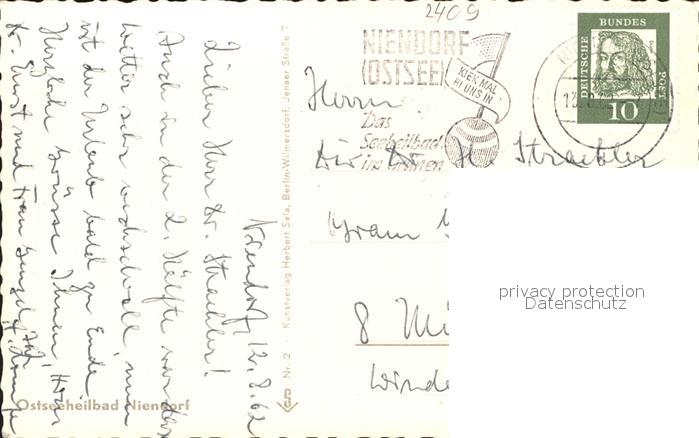 2409
NIENDORF
(OSTSEE)
KIEK MAL
BI UNS IN
Das
Seeheilbad
im Grünen
DEUTSCHE
BUNDES
POST
10
Herrn
Dir. Dr. H. Straehler
8
privacy protection
Datenschutz
Niendorf, 12.8.62
Lieber Herr Dr. Straehler!
Auch in der 2. Hälfte war das
Wetter sehr wechselvoll, nun
ist der Urlaub bald zu Ende
Herzliche Grüsse Ihnen, Ihr
Dr. Ernst und Frau
Nr. 2 · Kunstverlag Herbert Sala, Berlin-Wilmersdorf, Jenaer Straße 7
Ostseeheilbad Niendorf